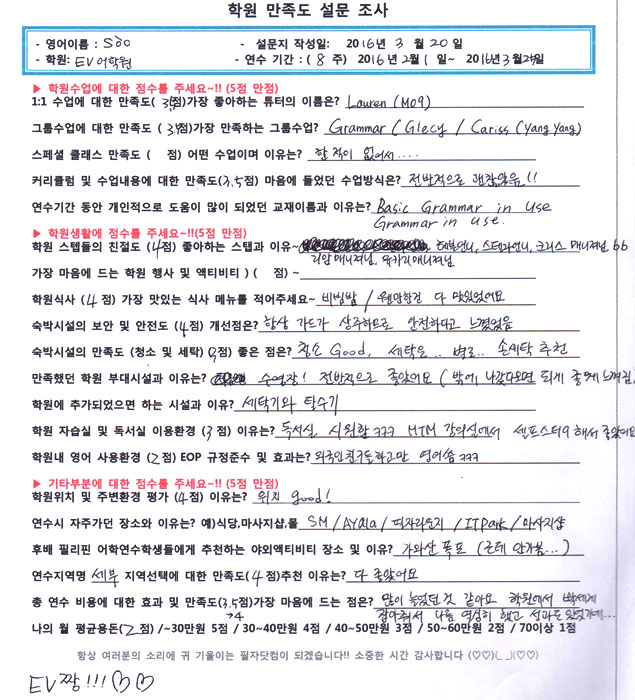 학원 만족도 설문 조사
- 영어이름 : Soo - 설문지 작성일: 2016년 3월 20일
- 학원: EV어학원 - 연수 기간 : ( 8 주) 2016년 2월 1일~ 2016년 3월 일
▶ 학원수업에 대한 점수를 주세요~!! (5점 만점)
1:1 수업에 대한 만족도( 점)가장 좋아하는 튜터의 이름은? Lauren (M09)
그룹수업에 대한 만족도 ( 점)가장 만족하는 그룹수업? Grammar (Glecy / Cariss (Yang Yang)
스페셜 클래스 만족도 ( 점) 어떤 수업이며 이유는? 한 적이 없어서....
커리큘럼 및 수업내용에 대한 만족도(3.5점) 마음에 들었던 수업방식은? 전반적으로 괜찮았음!!
연수기간 동안 개인적으로 도움이 많이 되었던 교재이름과 이유는? Basic Grammar in Use
Grammar in use.
▶ 학원생활에 점수를 주세요~!!(5점 만점)
학원 스템들의 친절도 (4점) 좋아하는 스탭과 이유~ 언니, 스텔라언니, 크리스 매니저님 bb
리암매니저님, 매니저님
가장 마음에 드는 학원 행사 및 액티비티 ) ( 점) ~
학원식사 (4점) 가장 맛있는 식사 메뉴를 적어주세요~ 비빔밥 / 웬만한건 다 맛있었어요
숙박시설의 보안 및 안전도 (4점) 개선점은? 항상 가드가 상주하므로 안전하다고 느꼈었음
숙박시설의 만족도 (청소 및 세탁) ( 점) 좋은 점은? 청소 Good, 세탁은.. 별로.. 손세탁 추천
만족했던 학원 부대시설과 이유는? 수영장! 전반적으로 좋았어요 (밖에 나갔다오면 되게 좋게 느껴짐)
학원에 추가되었으면 하는 시설과 이유? 세탁기와 탈수기
학원 자습실 및 독서실 이용환경 (3점) 이유는? 독서실 시원함 ㅋㅋㅋ MTM 강의실에서 셀프스터디 해서 좋았어요
학원내 영어 사용환경 (2점) EOP 규정준수 및 효과는? 외국인친구들하고만 영어씀 ㅋㅋㅋ
▶ 기타부분에 대한 점수를 주세요~!! (5점 만점)
학원위치 및 주변환경 평가 (4점) 이유는? 위치 good!
연수시 자주가던 장소와 이유는? 예)식당,마사지샵,몰 SM / Ayala / 피자리퍼블릭 / IT Park / 마사지샵
후배 필리핀 어학연수학생들에게 추천하는 야외액티비티 장소 및 이유? 가와산 폭포 (근데 안가봄...)
연수지역명 세부 지역선택에 대한 만족도( 4 점)추천 이유는? 다 좋았어요
총 연수 비용에 대한 효과 및 만족도(3.5점)가장 마음에 드는 점은? 많이 늘었던 것 같아요 학원에서 빡세게
잡아줘서 나름 열심히 했고 성과도 있었기에...
나의 월 평균용돈(2점) /~30만원 5점 / 30~40만원 4점 / 40~50만원 3점 / 50~60만원 2점 / 70이상 1점
항상 여러분의 소리에 귀 기울이는 필자닷컴이 되겠습니다!! 소중한 시간 감사합니다 (♡♡)(_ _)(♡♡)
EV 짱!!! ♡♡